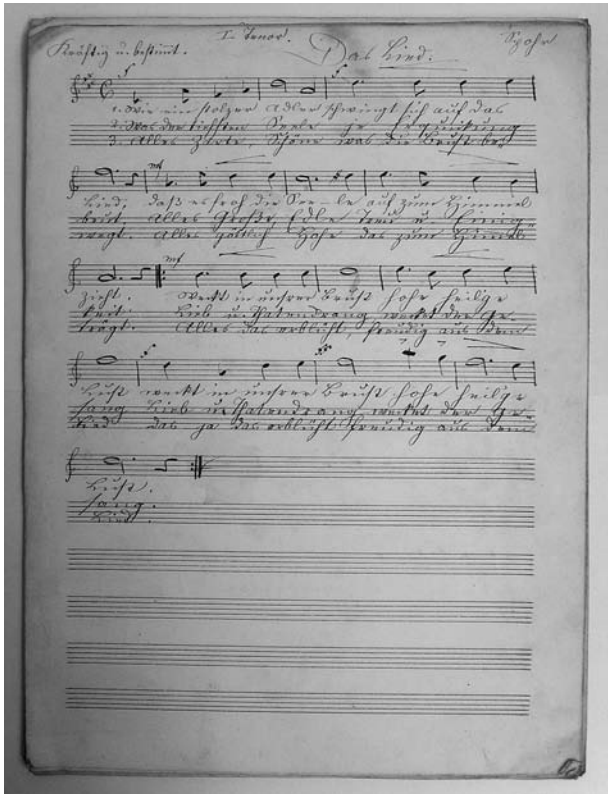 I. Tenor.
Kräftig u. bestimmt.
Das Lied.
Spohr
f
f
1. Wie ein stolzer Adler schwingt sich auf das
2. Was der tiefsten Seele je
3. Alles Zarte, Schöne was die Brust be-
mf
Lied, daß es froh die See-le auf zum Himmel
beut Alles Große, Edle Treu u. Einig-
wegt. Alles göttlich Hohe das zum Himmel
mf
zieht. Weckt in unsrer Brust hohe heilge
keit. Lieb u. Thatendrang wecket der Ge-
trägt. Alles das erblüht, freudig aus dem
Lust weckt in unsrer Brust hohe heilge
sang Lieb u. Thatendrang wecket der Ge-
Lied das ja das erblüht freudig aus dem
Lust.
sang.
Lied.